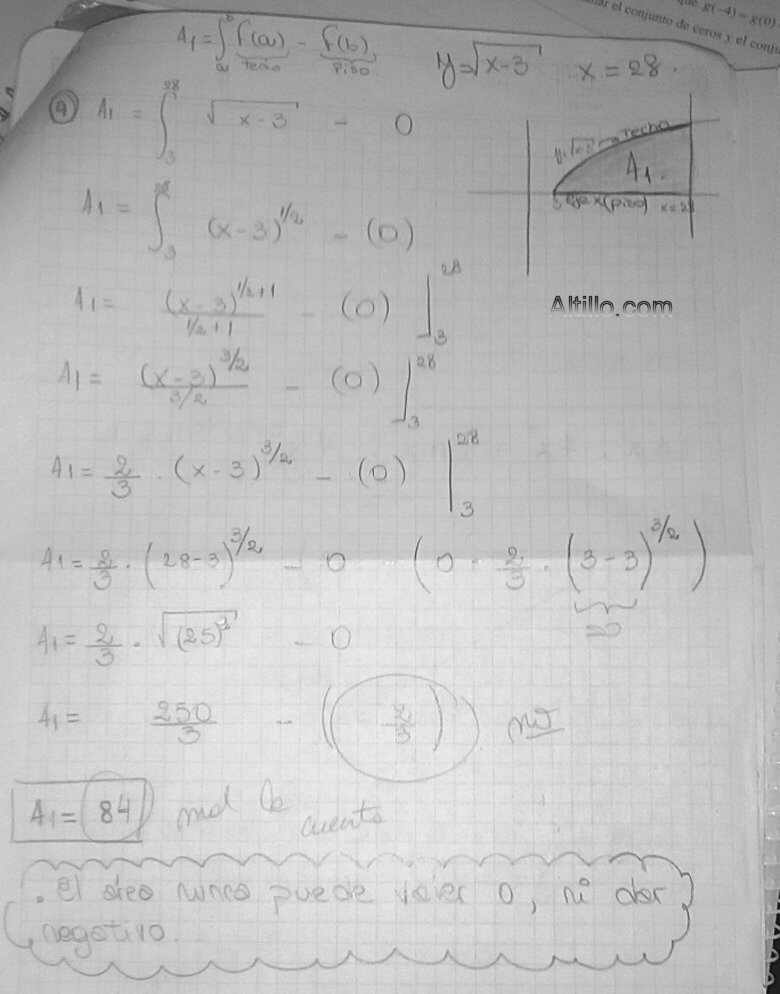 que g(-4) = g(0)
ar el conjunto de ceros y el conju
A₁ = ∫ₐᵇ f(a) - f(b)
techo piso
y = √(x-3) x = 28.
④ A₁ = ∫₃²⁸ √(x-3) - 0
techo
A₁
3 eje x (piso) x=28
A₁ = ∫₃²⁸ (x-3)^(1/2) - (0)
Altillo.com
A₁ = (x-3)^(1/2+1) / (1/2+1) - (0) |₃²⁸
A₁ = (x-3)^(3/2) / (3/2) - (0) |₃²⁸
A₁ = 2/3 . (x-3)^(3/2) - (0) |₃²⁸
A₁ = 2/3 . (28-3)^(3/2) - 0 (0 - 2/3 . (3-3)^(3/2))
A₁ = 2/3 . √(25)³ - 0
A₁ = 250/3 - (2/3)
A₁ = 84 mal la cuenta
. El área nunca puede valer 0, ni dar
negativo.